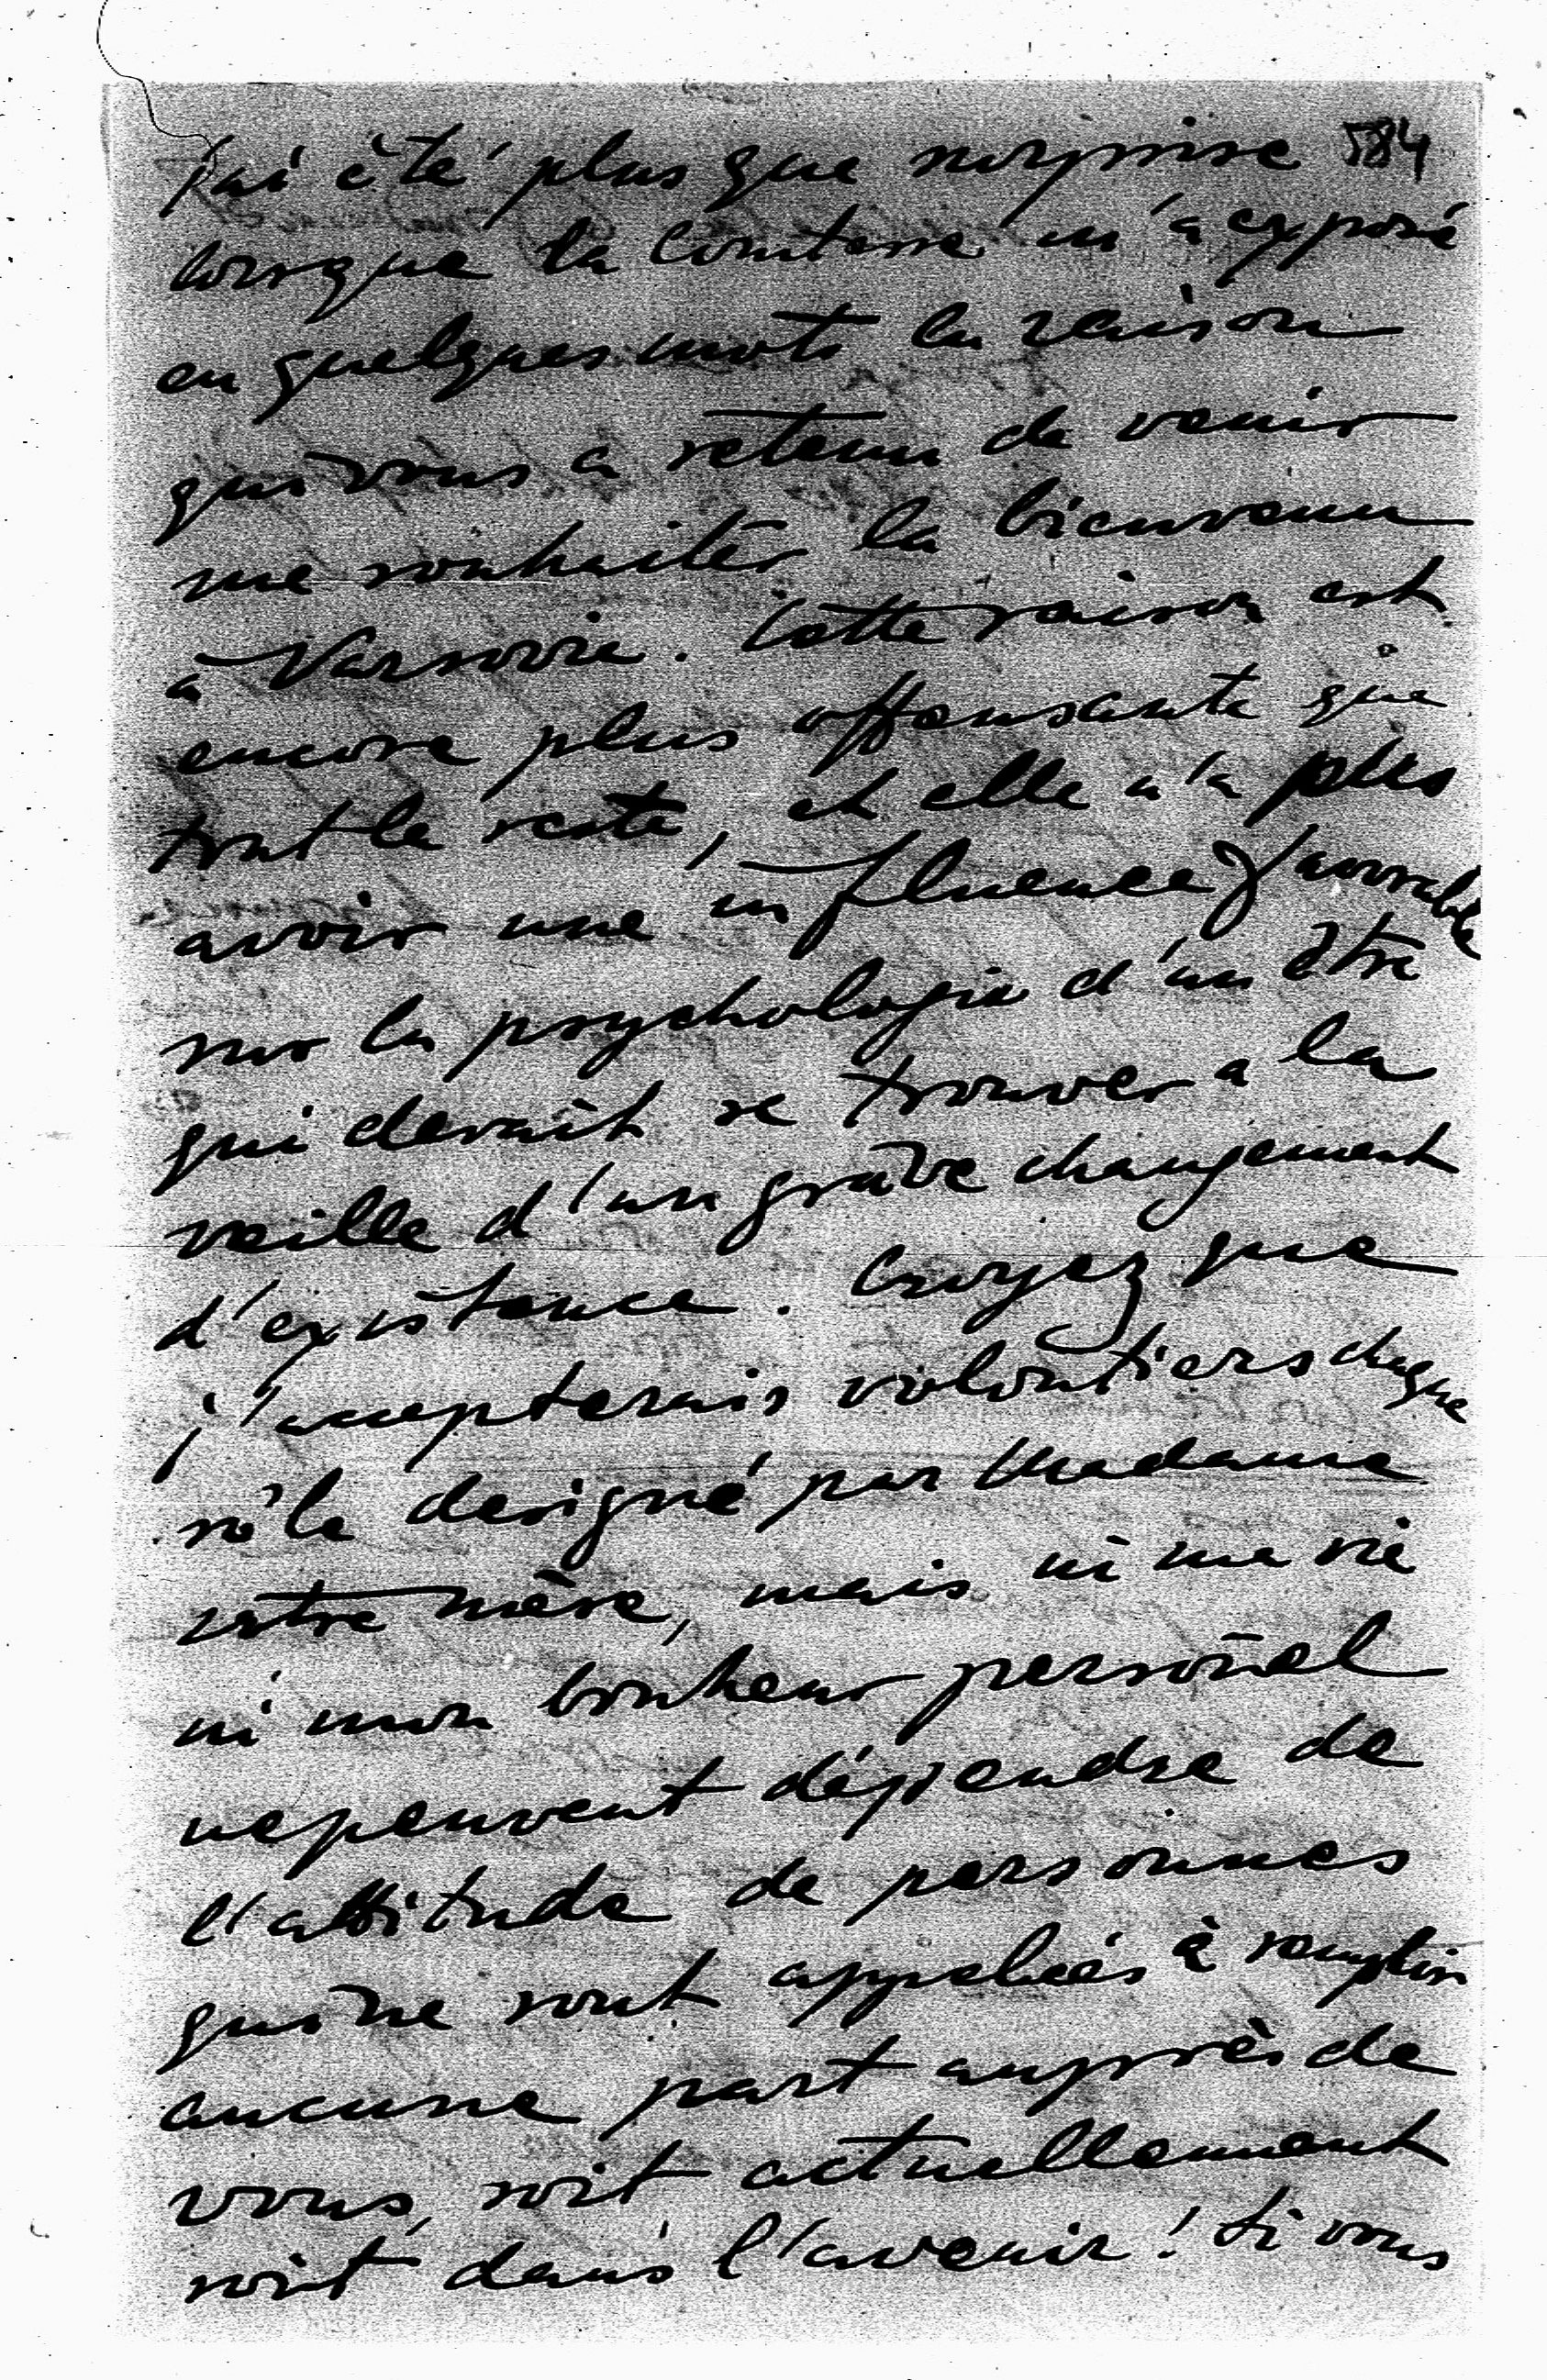 J'ai été plus que surprise 584
lorsque la Comtesse m'a exposé
en quelques mots la raison
qui vous a retenu de venir
me souhaiter la bienvenu
à Varsovie. Cette raison est
encore plus offensante que
tout le reste, et elle n'a pu
avoir une influence favorable
sur la psychologie d'un être
qui devait se trouver a la
veille d'un grave changement
d'existence. Croyez que
j'accepterais volontiers chaque
rôle designé par Madame
votre mère, mais ni ma vie
ni mon bonheur personel
ne peuvent dépendre de
l'attitude de personnes
qui ne sont appelées à remplir
aucune part auprès de
vous, soit actuellement
soit dans l'avenir! Si vous